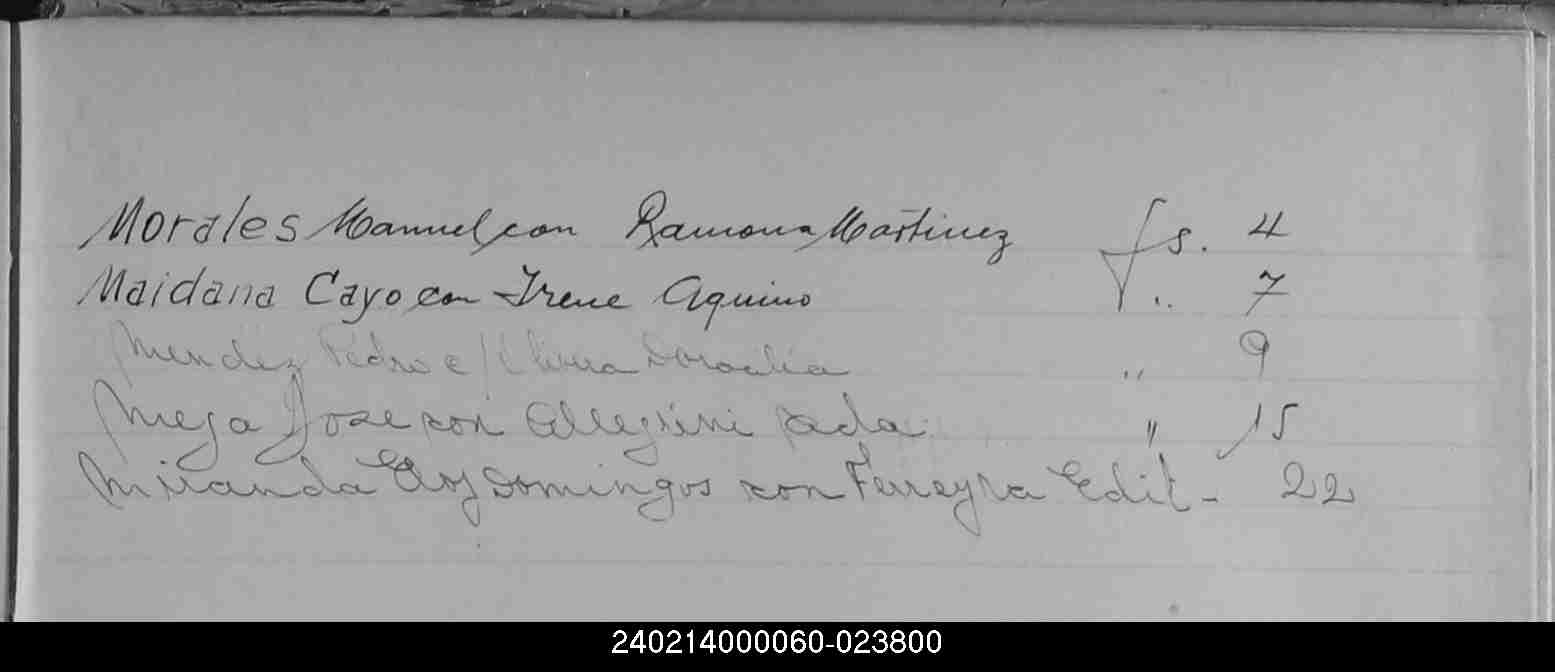 Morales Manuel con Ramona Martinez fs. 4
Maidana Cayo con Irene Aquino " 7
Mendez Pedro c/ Doralia " 9
Meza Jose con Allegrini Ada " 15
Miranda Eloy Domingos con Ferreyra Edit - 22
240214000060-023800